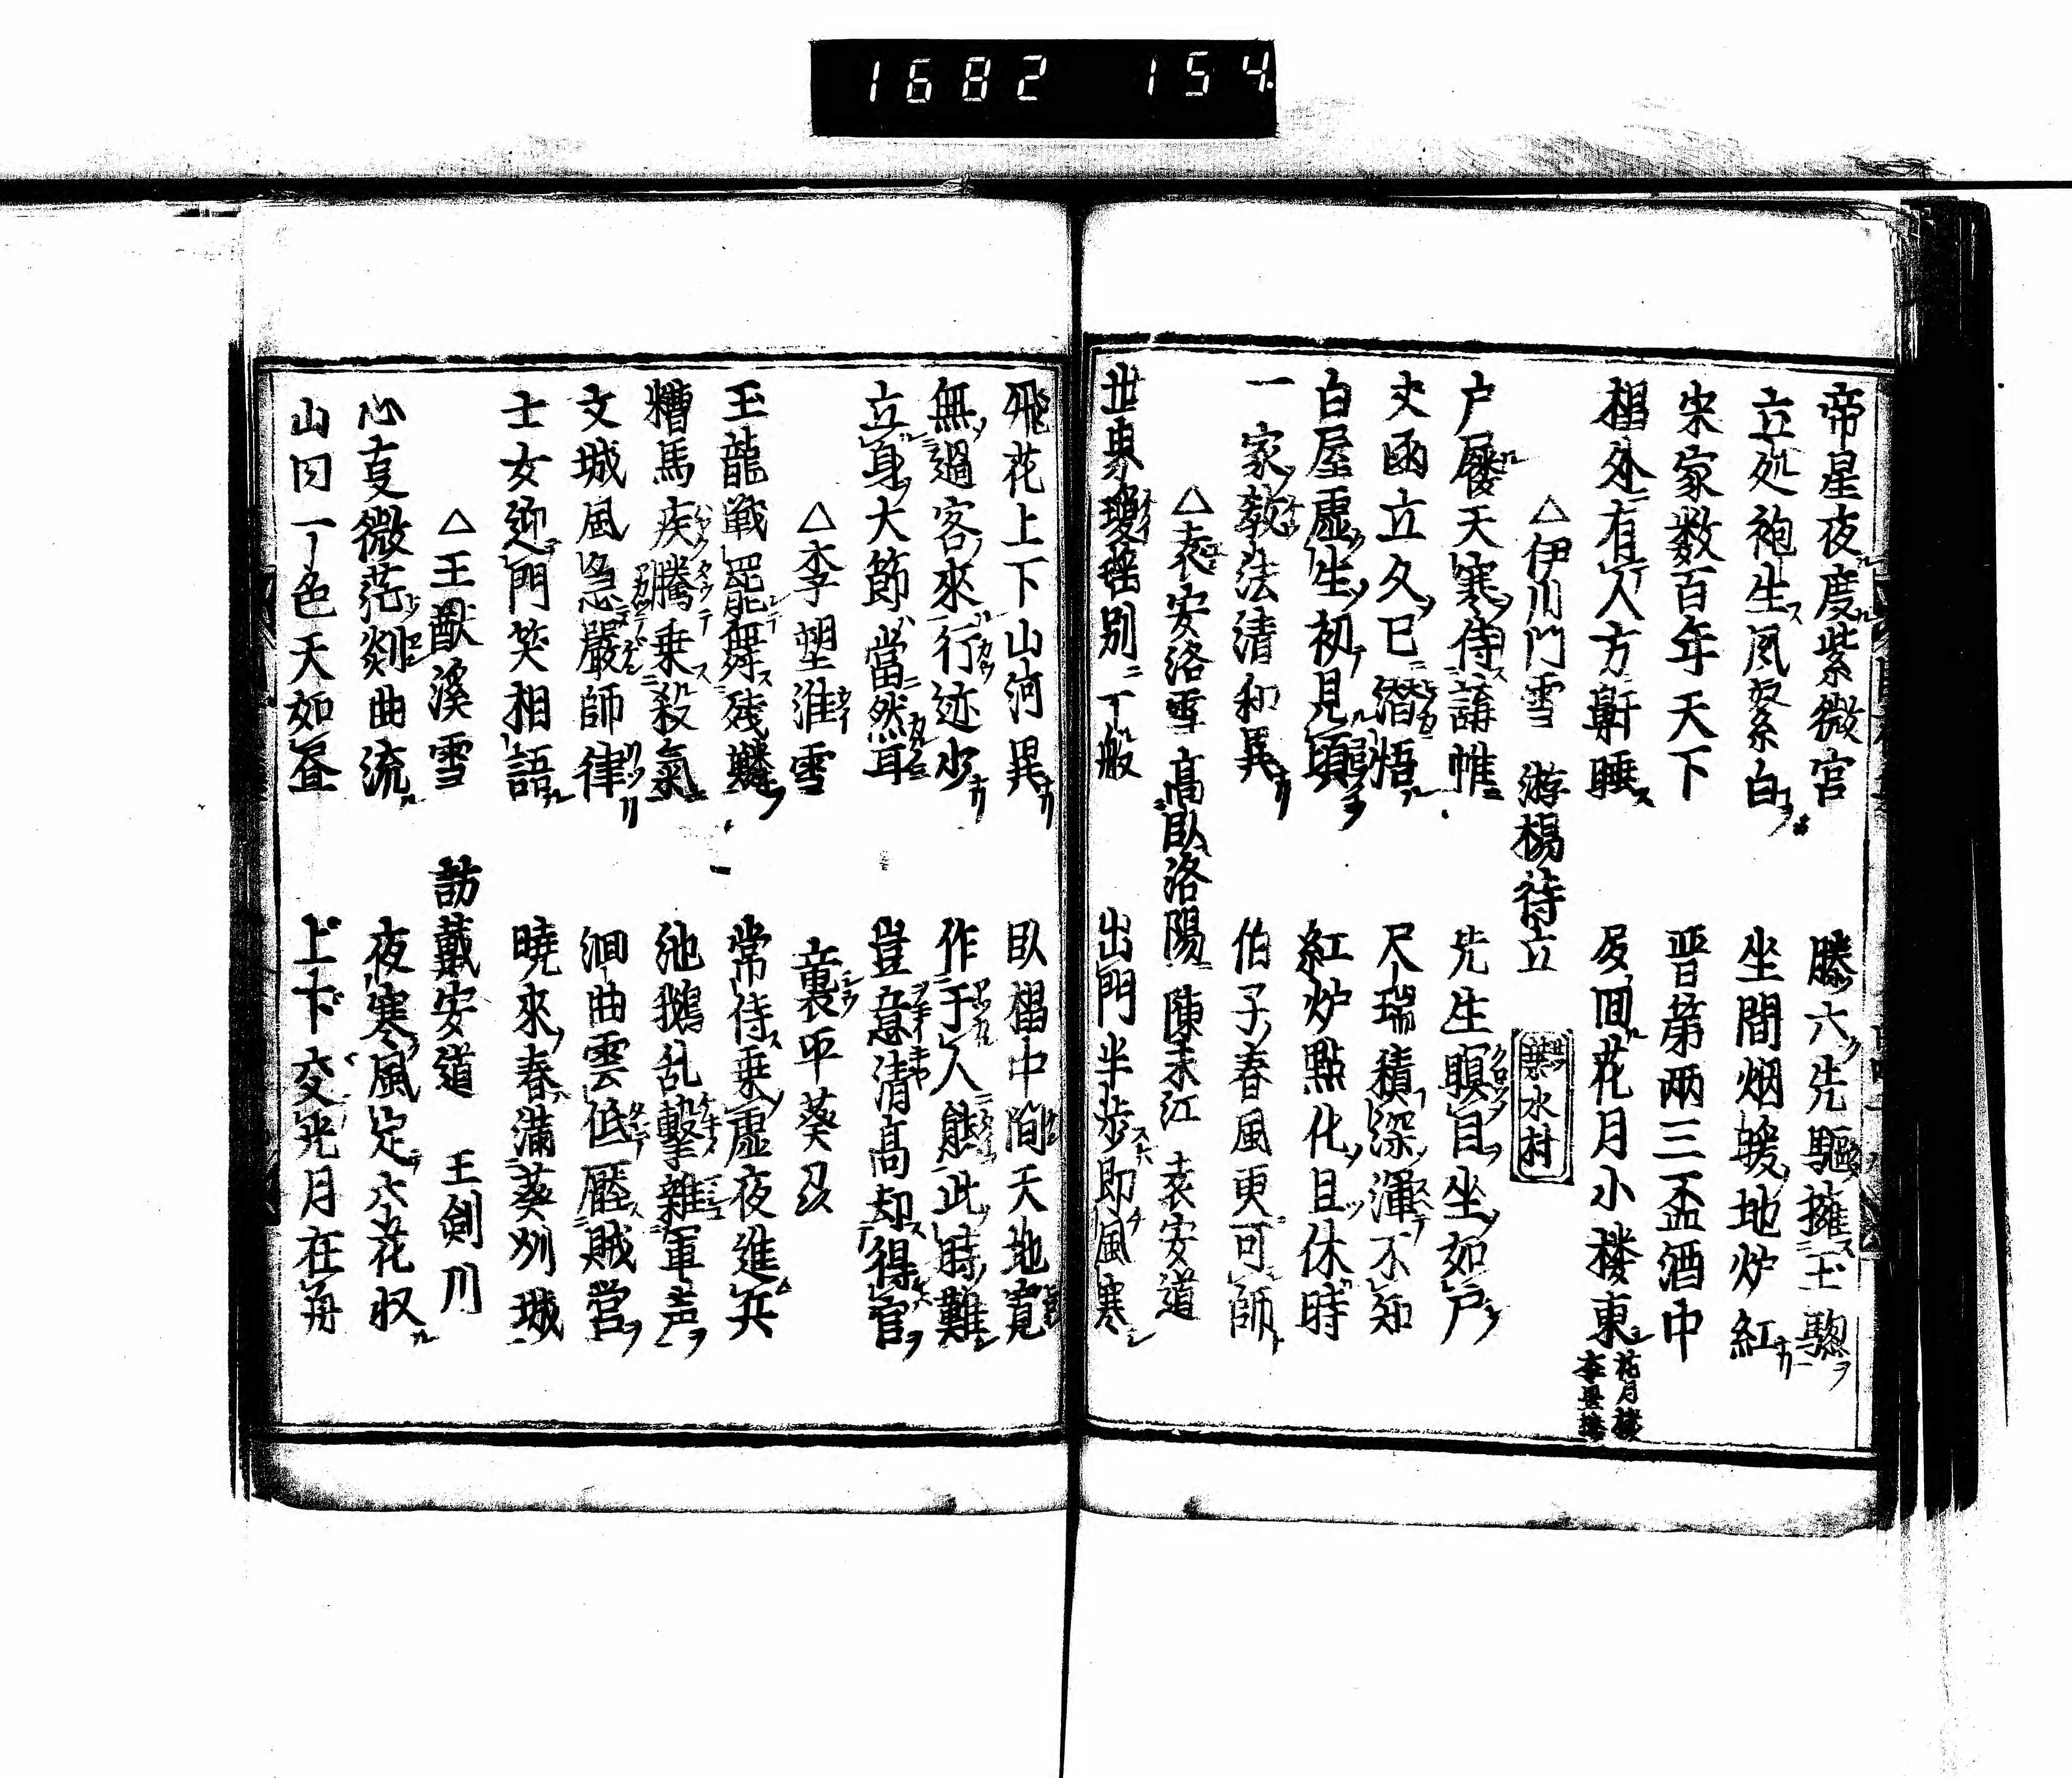 1682 154
帝星夜度紫微宮 滕六先驅擁玉驄
立処袍生風絮白 坐間烟暖地炉紅
宋家数百年天下 晋第兩三盃酒中
榻外有人方鼾睡 夜回花月小楼東
花月楼
△伊川門雪 游楊待立 葉水村
户屨天寒侍講帷 先生瞑目坐如尸
丈函立久已潛悟 尺瑞積深渾不知
白屋虚生初見頃 紅炉點化且休時
一家教法清和異 伯子春風更可師
△袁安洛雪 高臥洛陽 陳耒江 袁安道
世東瓊瑶別一般 出門半歩即風寒
飛花上下山河異 臥榻中間天地寛
無過客來行迹少 作于人態此時難
立身大節當然耳 豈意清高却得官
△李愬淮雪 裏平蔡
玉龍戦罷舞残鱗 常侍乗虚夜進兵
糟馬疾騰乗殺氣 池鵝乱擊雜軍声
文城風急嚴師律 洄曲雲低壓賊営
士女迎門笑相語 曉來春滿蔡州城
△王猷溪雪 訪戴安道 王劍川
心事微茫剡曲流 夜寒風定六花収
山囙一色天如昼 上下交光月在舟